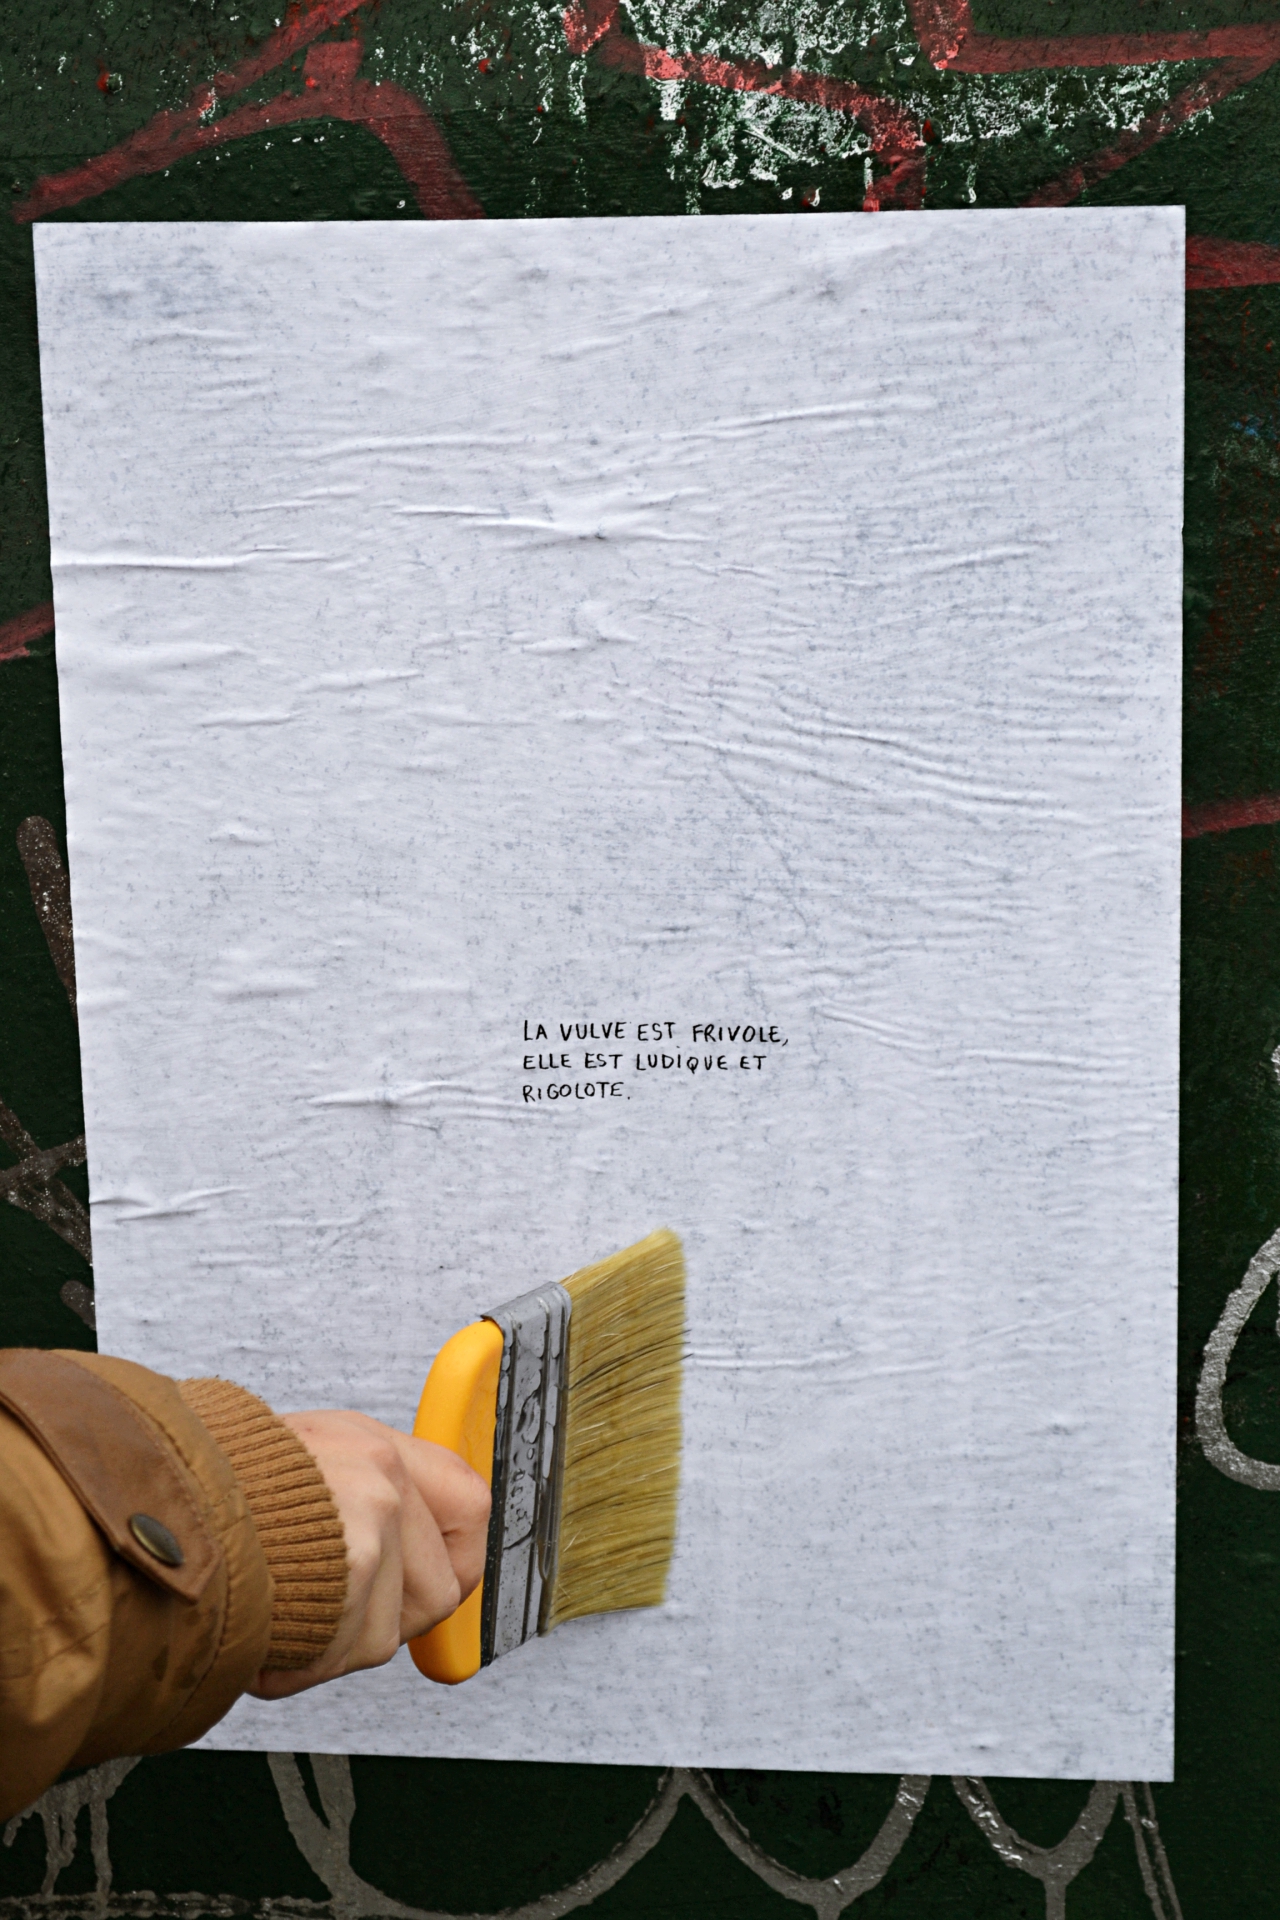 LA VULVE EST FRIVOLE,
ELLE EST LUDIQUE ET
RIGOLOTE.